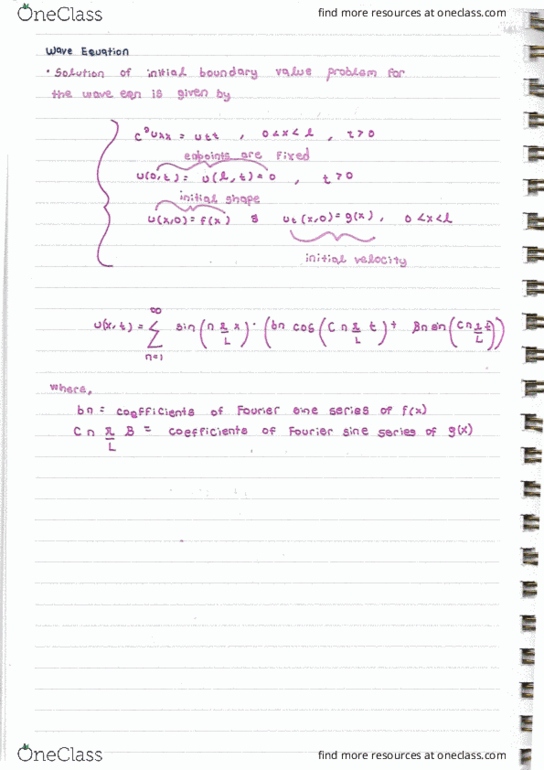 OneClass
find more resources at oneclass.com
Wave Equation
• Solution of initial boundary value problem for
the wave eqn is given by
c²uxx = utt , 0<x<l , t>0
enpoints are fixed
u(0,t) = u(l,t)=0 , t>0
initial shape
u(x,0)=f(x) & ut(x,0)=g(x), 0<x<l
initial velocity
u(x,t) = ∞∑n=1 sin(n π/L x)·(bn cos(Cn π/L t)+ Bn sin(Cn π t/L))
where,
bn = coefficients of Fourier sine series of f(x)
C n π/L B = coefficients of Fourier sine series of g(x)
OneClass
find more resources at oneclass.com